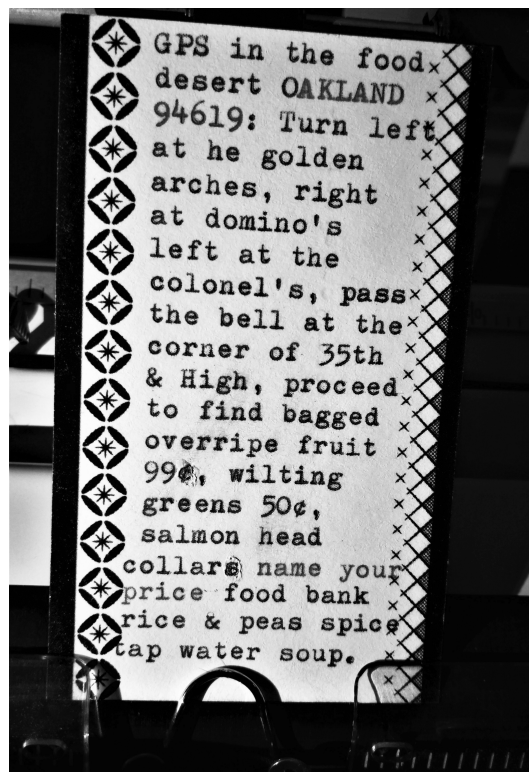 GPS in the food
desert OAKLAND
94619: Turn left
at he golden
arches, right
at domino's
left at the
colonel's, pass
the bell at the
corner of 35th
& High, proceed
to find bagged
overripe fruit
99¢, wilting
greens 50¢,
salmon head
collars name your
price food bank
rice & peas spice
tap water soup.